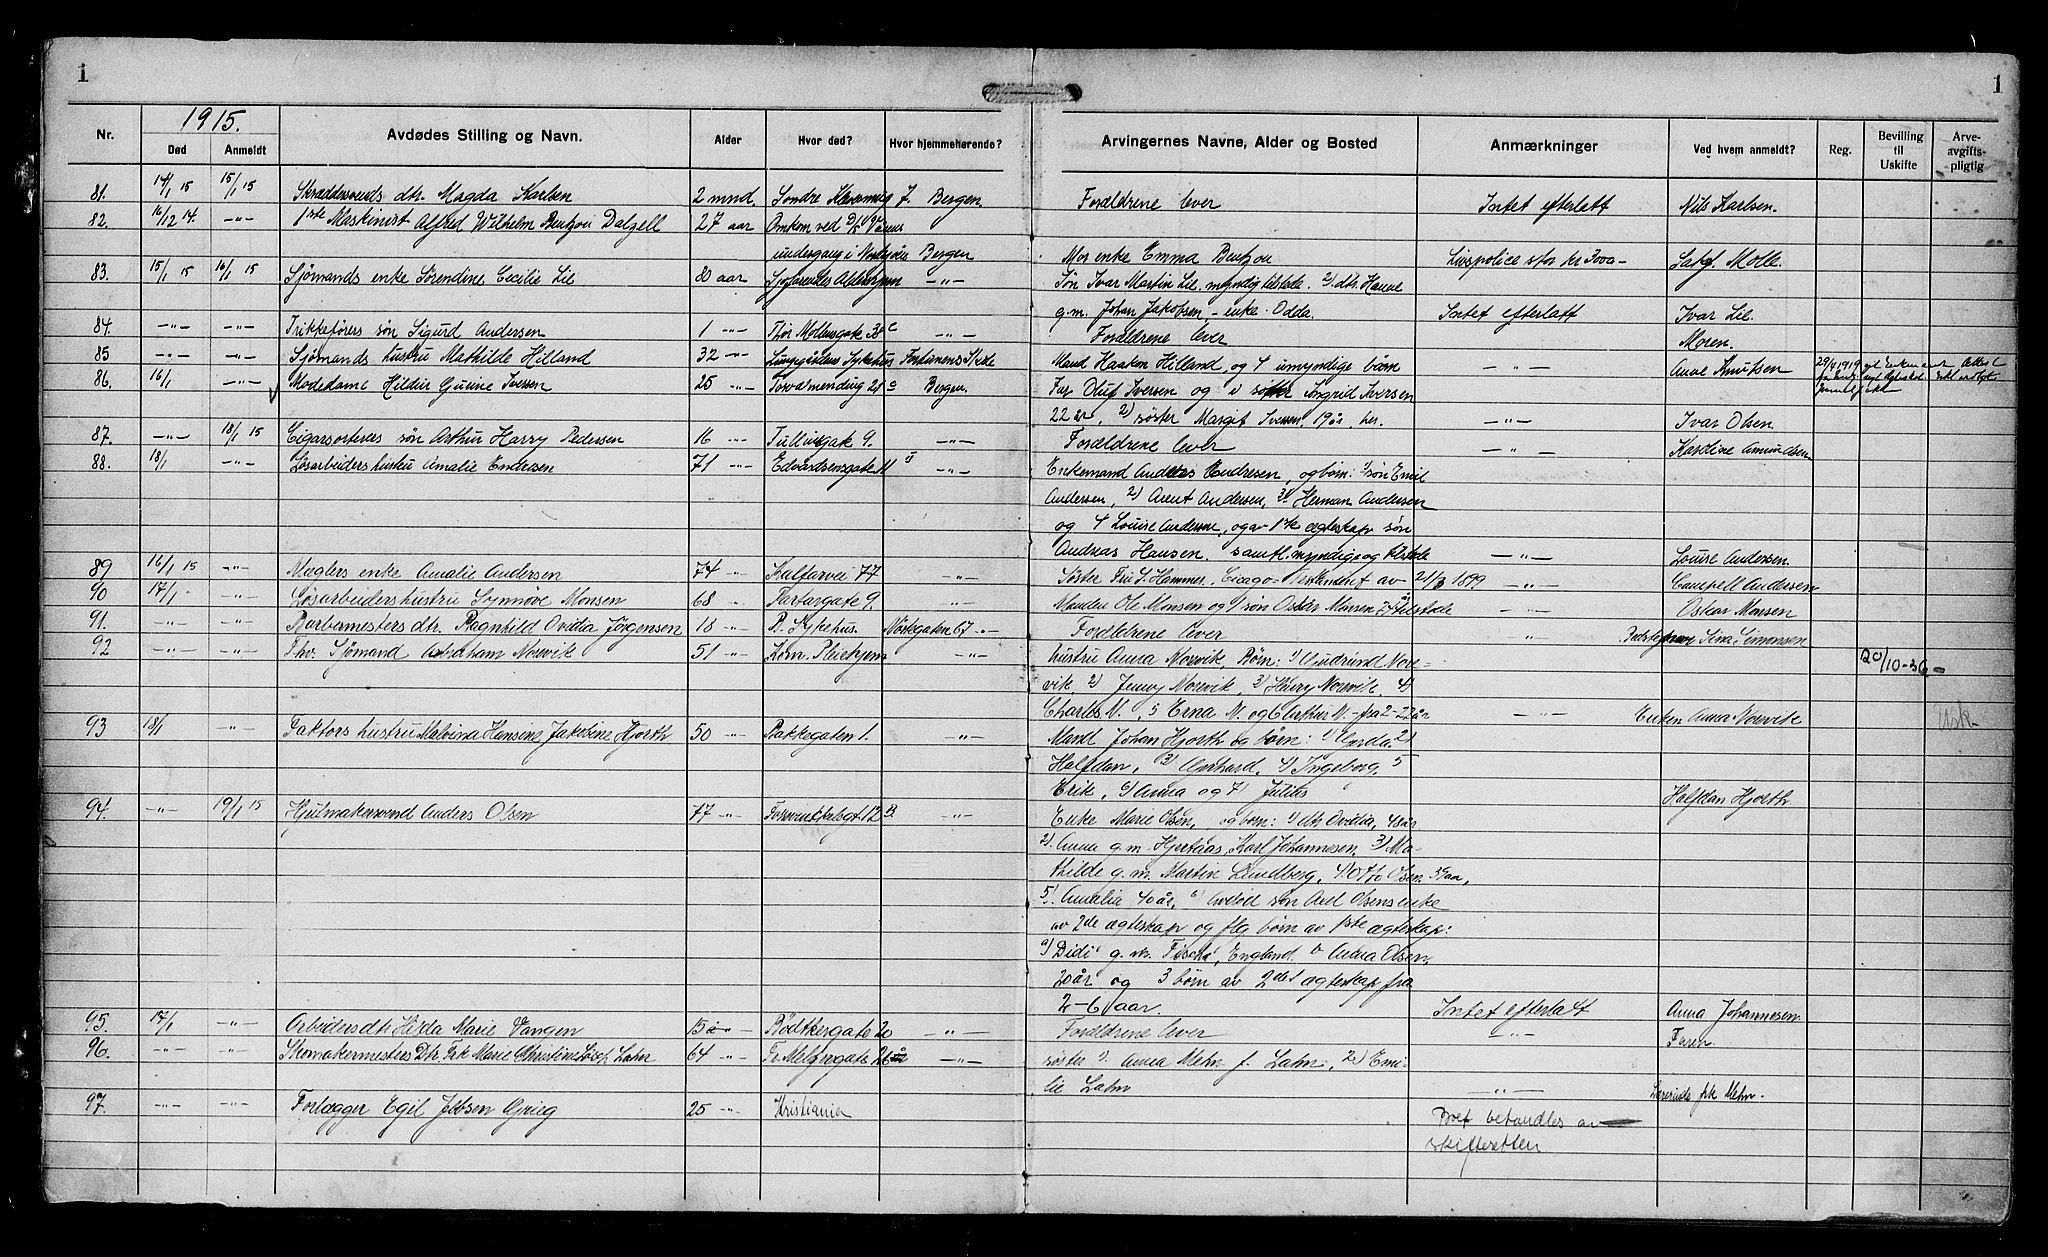 1
1
1915.
Nr.
Død
Anmeldt
Avdødes Stilling og Navn.
Alder
Hvor død?
Hvor hjemmehørende?
Arvingernes Navne, Alder og Bosted
Anmærkninger
Ved hvem anmeldt?
Reg.
Bevilling til Uskifte
Arve-avgifts-pligtig
81. 14/1 15 15/1 15 Skræddersvends dtr. Magda Karlsen 2 mnd. Søndre 7. Bergen Forældrene lever Intet efterlatt Nils Karlsen.
82. 16/12 14. -"- 1ste Maskinist Alfred Wilhelm Bentzon Dalgell 27 aar Omkom ved D/S
undergang i Bergen Mor enke Emma Bentzon Livspolice stor kr 3000- Sakf. Molle.
83. 15/1 15 16/1 15 Sjømands enke Sørendine Cecilie Lie 80 aar -"- Søn Ivar Martin Lie, myndig tilstede. 2) dtr. Hanne
g.m. Johan Jakobsen, - enke - Odda. Intet efterlatt Ivar Lie.
84. -"- -"- Trikkeførers søn Sigurd Andersen 1 -"- Thor Møllersgate 38 c -"- Forældrene lever Moren.
85 -"- -"- Sjømands hustru Mathilde Hilland 32 -"- Lungegårdens Sykehus Mand Haakon Hilland, og 4 umyndige børn -"- Anne Knutsen
86. 16/1 -"- Modedame Hildur Iversen 25 -"- Bergen. Far Oluf Iversen og Ingrid Iversen
22 år, 2) søster Margit Iversen, 19 år, her. -"- Ivar Olsen
87. -"- 18/1 15 Cigarsorterers søn Arthur Harry Pedersen 16 -"- Tullinsgate 9. -"- Forældrene lever -"-
88. 18/1 -"- Løsarbeiders hustru Amalie Endresen 71 -"- Edvardsensgate 11 -"- Enkemand Anders Endresen, og børn: 1) søn Emil
Andersen, 2) Arent Andersen, 3) Herman Andersen
og 4 Louise Andersen, og av 1ste ægteskap søn
Andreas Hansen, samtl. myndige og tilstede -"- Louise Andersen.
89 16/1 15 -"- Mæglers enke Amalie Andersen 74 -"- Kalfarvei 77 -"- Søster Hammer, Cicago - Testament av 21/3 1899 -"- Andersen
90 17/1 -"- Løsarbeiders hustru Synnøve Monsen 68 -"- Tartargate 9. -"- Manden Ole Monsen og 1 søn Oskar Monsen tilstede -"- Oskar Monsen
91. -"- -"- Barbermesters dtr. Ragnhild Ovidia Jørgensen 18 -"- R. Sykehus. Nøstegaten 67 -"- Forældrene lever " Simonsen
92 -"- -"- Fhv. Sjømand Abraham Norevik 51 -"- Kom. Pleiehjem -"- hustru Anna Norvik Børn: 1) Gudrund Nore-
20/10-36 -
vik, 2) Jenny Norevik, 3) Harry Norevik, 4)
Charles N., 5 Erna N. og Arthur N. - fra 2 - 22 år -"- Enken Anna Norevik Usk-
93 18/1 -"- Faktors hustru Malvina Hansine Jakobine Hjorth 50 -"- Bakkegaten 1. -"- Mand Johan Hjorth og børn: 1) Gerda, 2)
Halfdan, 3) Gerhard, 4) Ingeborg, 5
Erik, 6) Anna og 7) Julius Halfdan Hjorth.
94. -"- 19/1 15 Hjulmakersvend Anders Olsen 77 -"- 12 B. -"- Enke Marie Olsen, og børn: 1) dtr. Ovidia, 48 år
2) Anna g.m. Hjertaas, Karl Johannesen, 3) Ma-
thilde g.m. Martin Lundberg, 4) Otto Olsen 39 aar,
5) Amalia 40 år, 6) Avdød søn Axel Olsens enke
av 2det ægteskap og flg børn av 1ste ægteskap:
a) Didi g.m. England. b Anna Olsen,
20 år og 3 børn av 2det ægteskap fra
2-6 aar. Intet efterlatt Anna Johannesen
95. 17/1 -"- Arbeiders dtr. Hilda Marie Vangen 15 -"- Bødtkersgate 20 -"- Forældrene lever -"- Faren
96. -"- -"- Skomakermesters Dtr. Frk Marie Christine Lahn 64 -"- Fr. Meltzersgate -"- søster 1) Anna Mehn f. Lahn, 2) Emi-
lie Lahn -"- frk Mehn.
97. -"- -"- Forlægger Egil Jebsen Grieg 25 -"- Kristiania
Boet behandles av
skifteretten